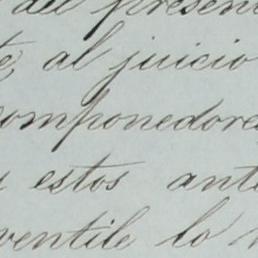 del present
al juicio
componedores
estos ant
ventile lo